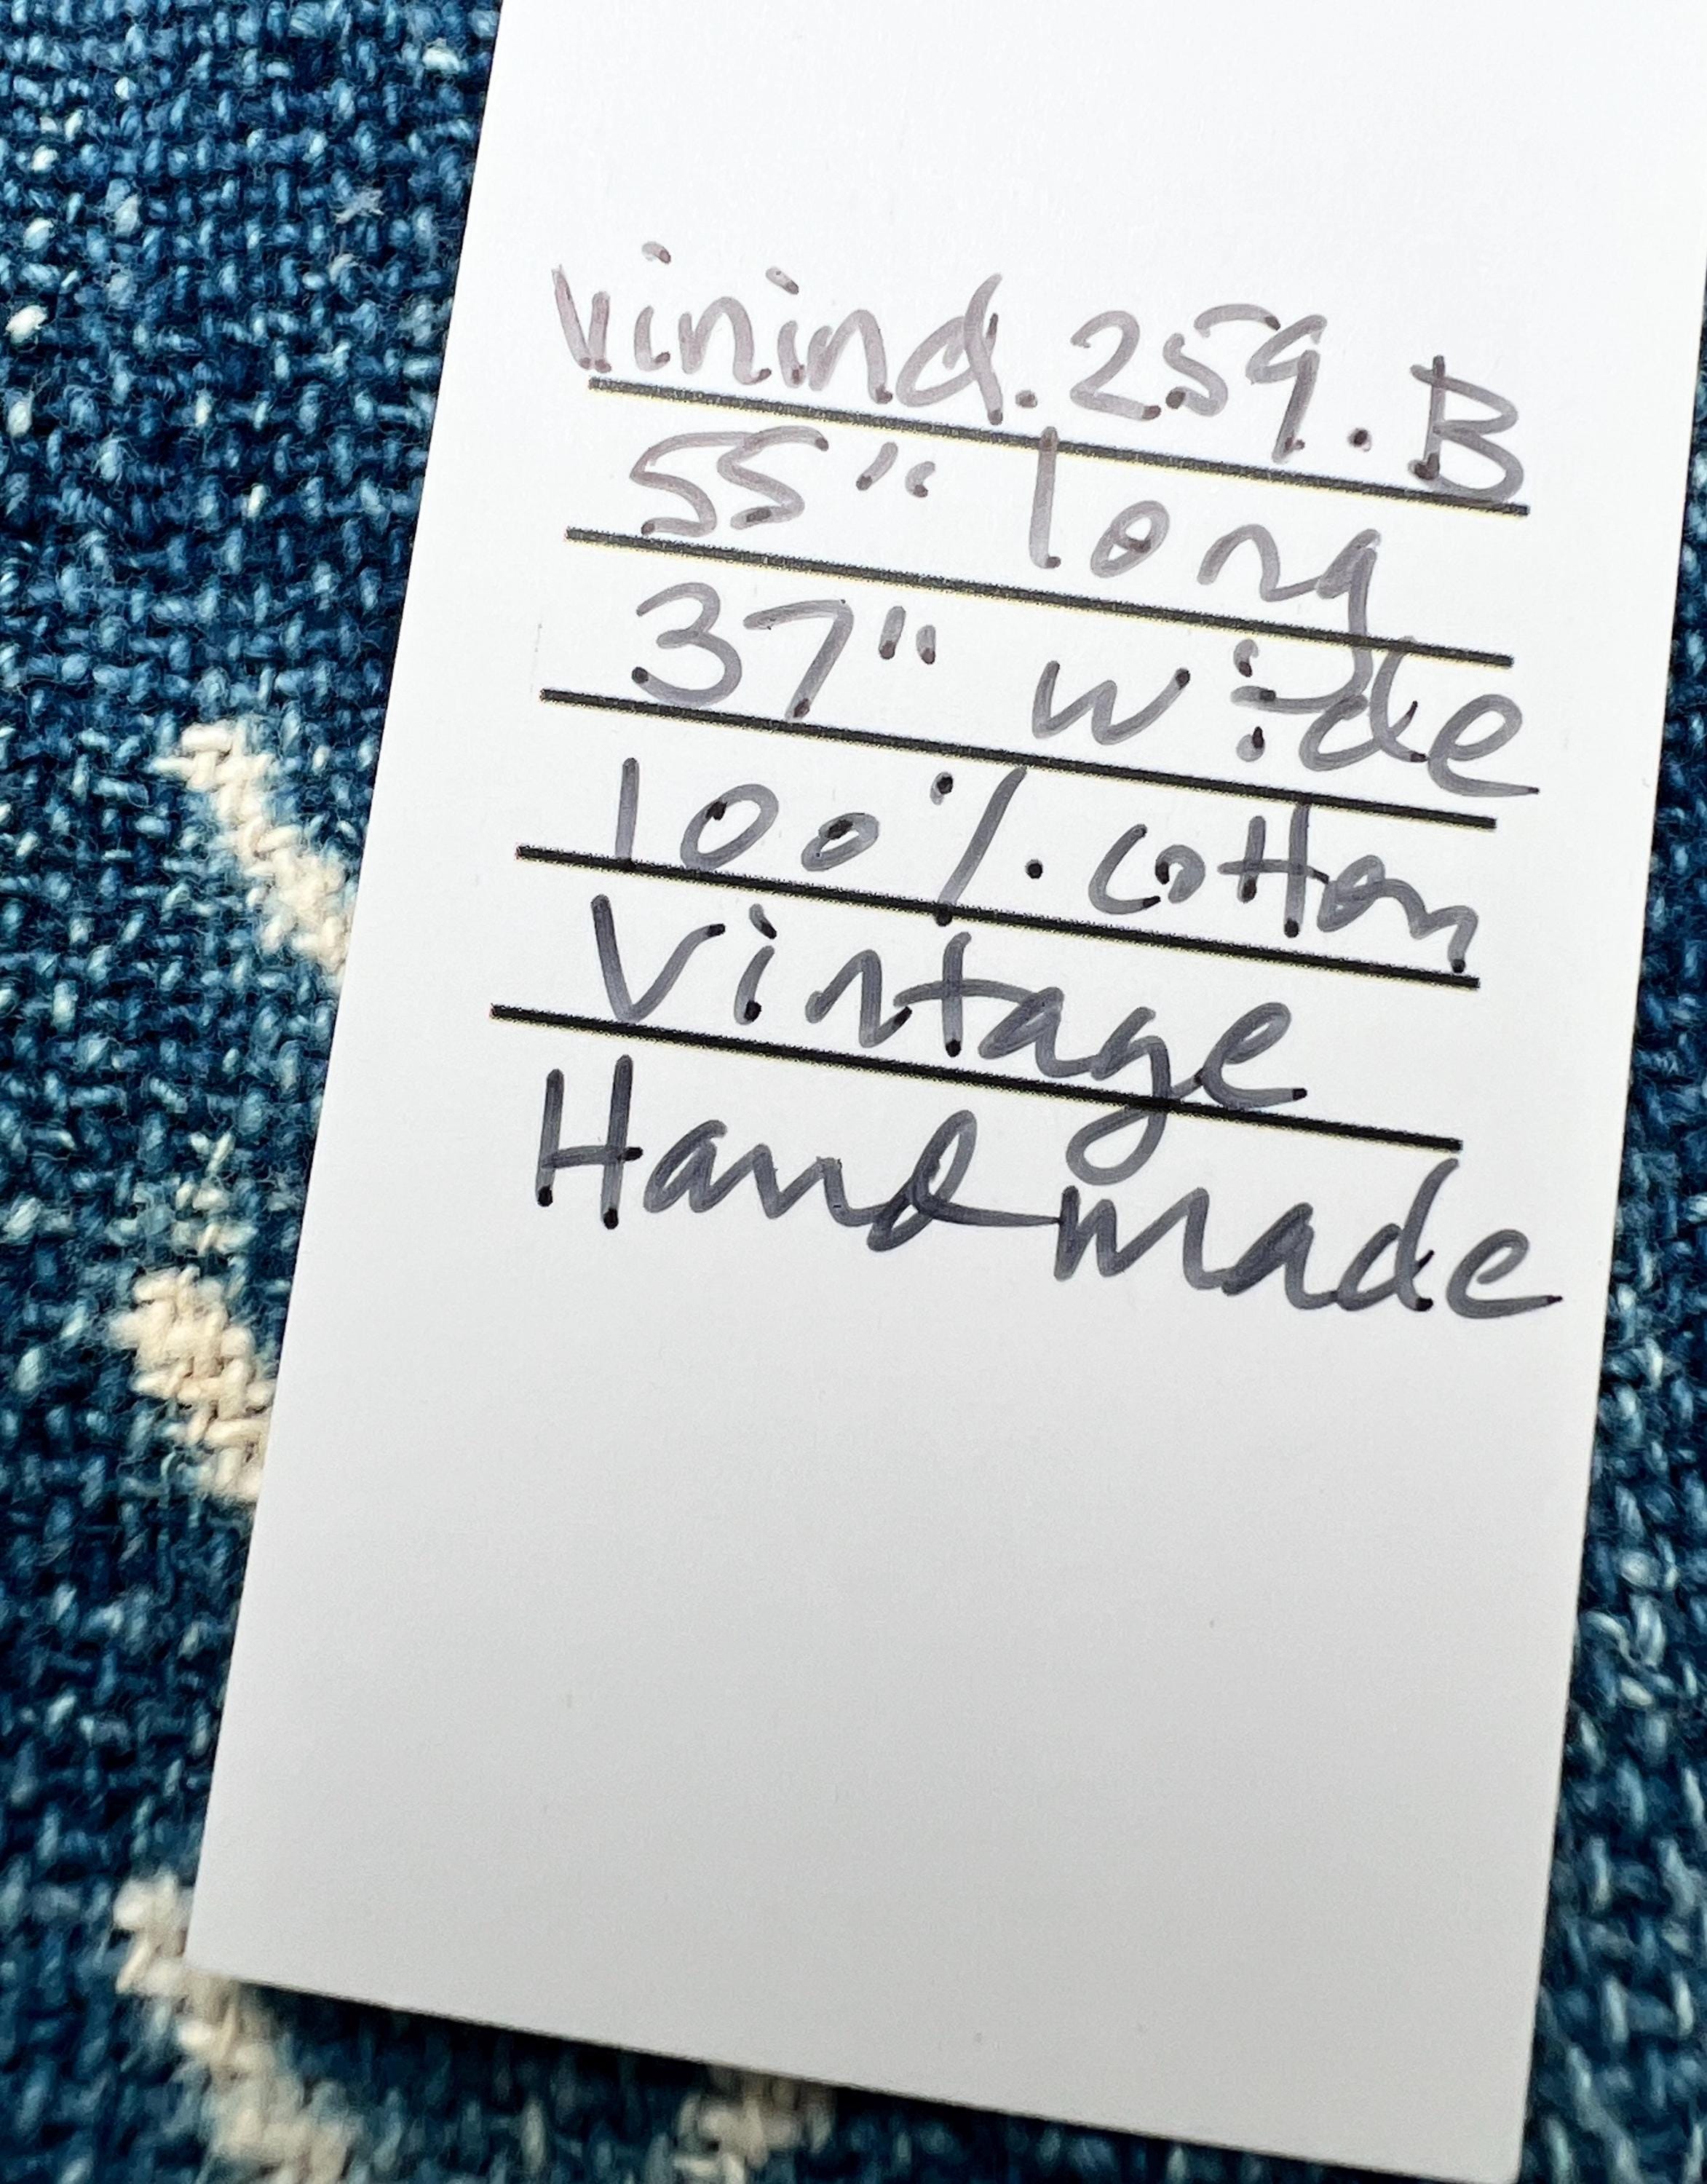 Vinind.259.B
55" long
37" wide
100% cotton
Vintage
Handmade